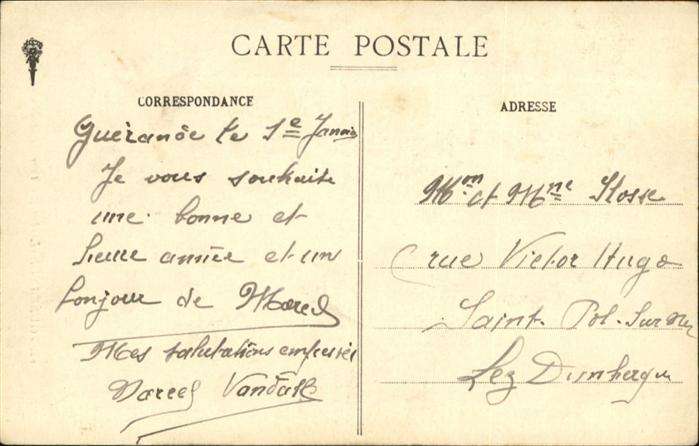 CARTE POSTALE
CORRESPONDANCE
Guérande le 1e Janvier
Je vous souhaite
une bonne et
heureuse année et un
bonjour de Marcel
Mes salutations empressées
Marcel Vandaële
ADRESSE
Mm et Mme Stosse
rue Victor Hugo
Saint Pol-Sur Mer
Lez Dunkerque